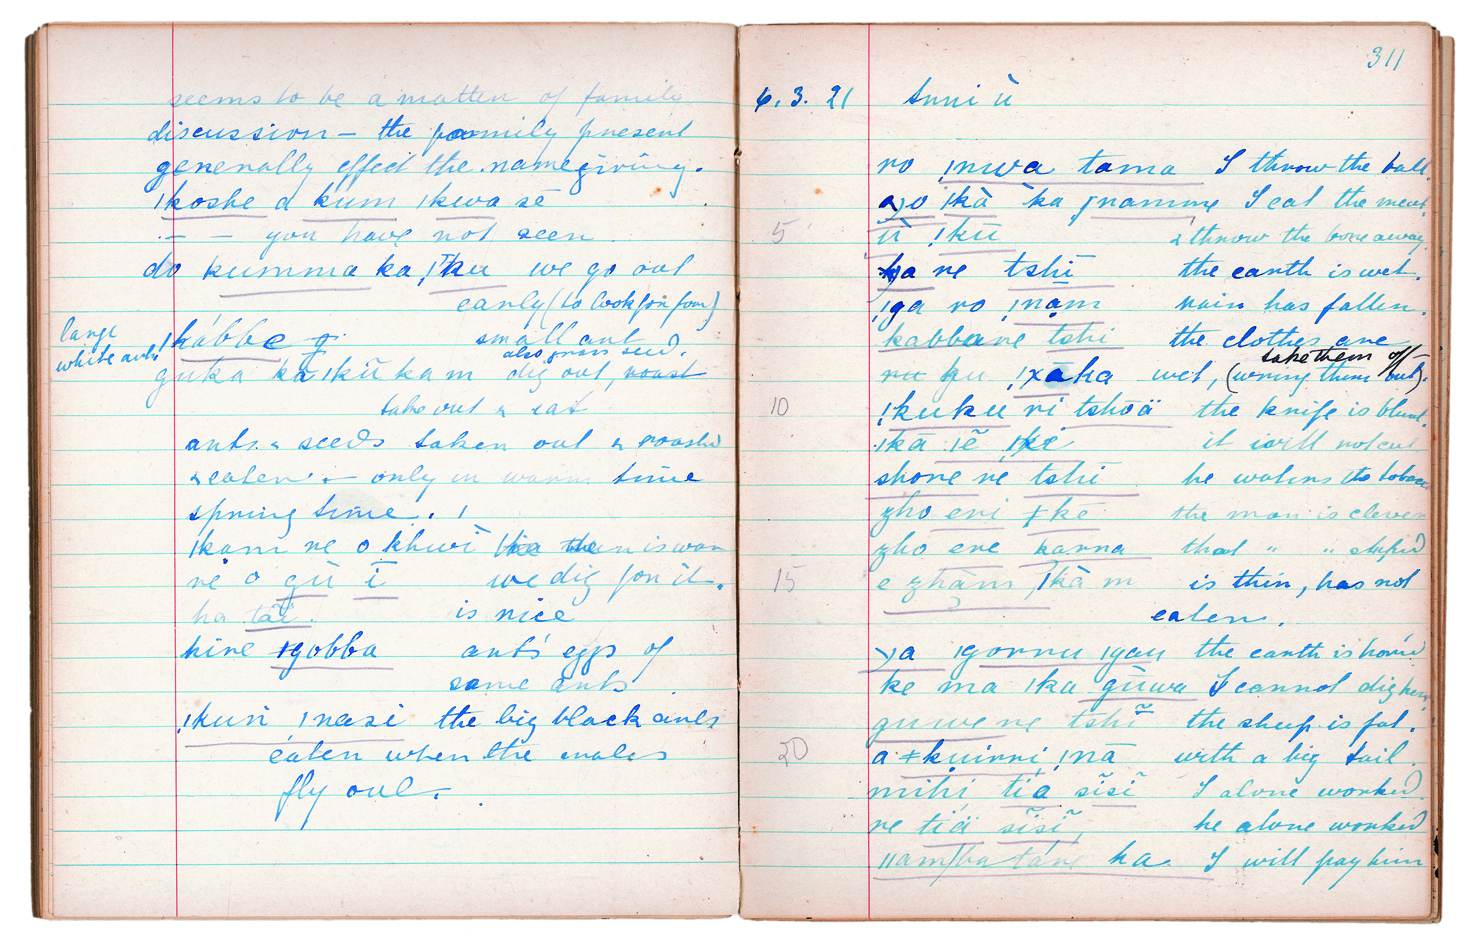 seems to be a matter of family
discussion — the family present
generally effect the namegiving.
ǀkoshe a kum ǀkwa sē
— — you have not seen
do kumma ka ǀku we go out
early (to look for food)
large
white ants
ǀkábbe small ant
also grass seed.
guka kā ǀkū kam dig out, roast
take out & eat
ants & seeds taken out & roasted
& eaten — only in warm time
spring time.
ǀkam ne o khwi when the sun is warm
ne o gù ī we dig for it.
ha tāī. is nice
hine ǂgobba ants' eggs of
some ants.
ǃkuri ǀnasi the big black ants
eaten when the males
fly out.
311
6. 3. 21
ro ǃnwa tama I throw the ball.
ǀkà ka ʃnamme I eat the meat
5 ù ǃkū & throw the bone away
ne tshī the earth is wet.
ǃga ro ǃnām rain has fallen.
kabbane tshi the clothes are
take them off —
ǃxaha wet, (wring them out).
10 ǃkuku ri tshöä the knife is blunt.
ǀkā ǀĕ it will not cut
shore ne tshi he waters the tobacco
zho eri ǂke the man is clever
zho ere karna that " " stupid
15 e zhàm, ǀkàm is thin, has not
eaten.
ǀgornu ǀgau the earth is hard
ke ma ǀka gūwa I cannot dig here
guwe ne tshĩ the sheep is fat.
20 a ǂkuinni ǃnā with a big tail.
mihi tiá sĩsĩ I alone worked.
ne tiä sĩsĩ, he alone worked
ǁam ba táne ha. I will pay him